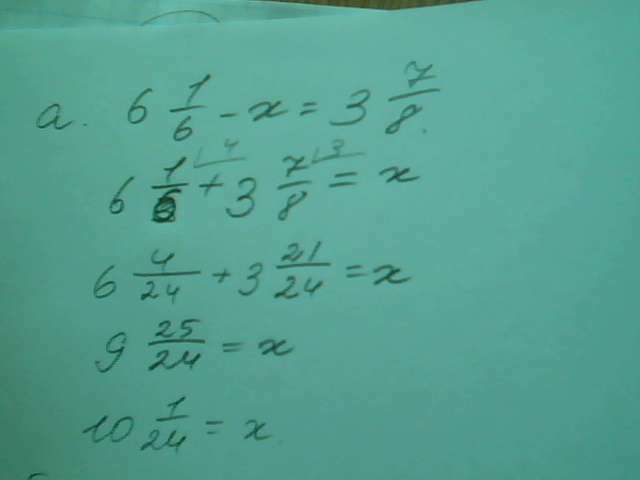 а. 6 1/6 - x = 3 7/8.
6 1/6 ⌊4 + 3 7/8 ⌊3 = x
6 4/24 + 3 21/24 = x
9 25/24 = x
10 1/24 = x